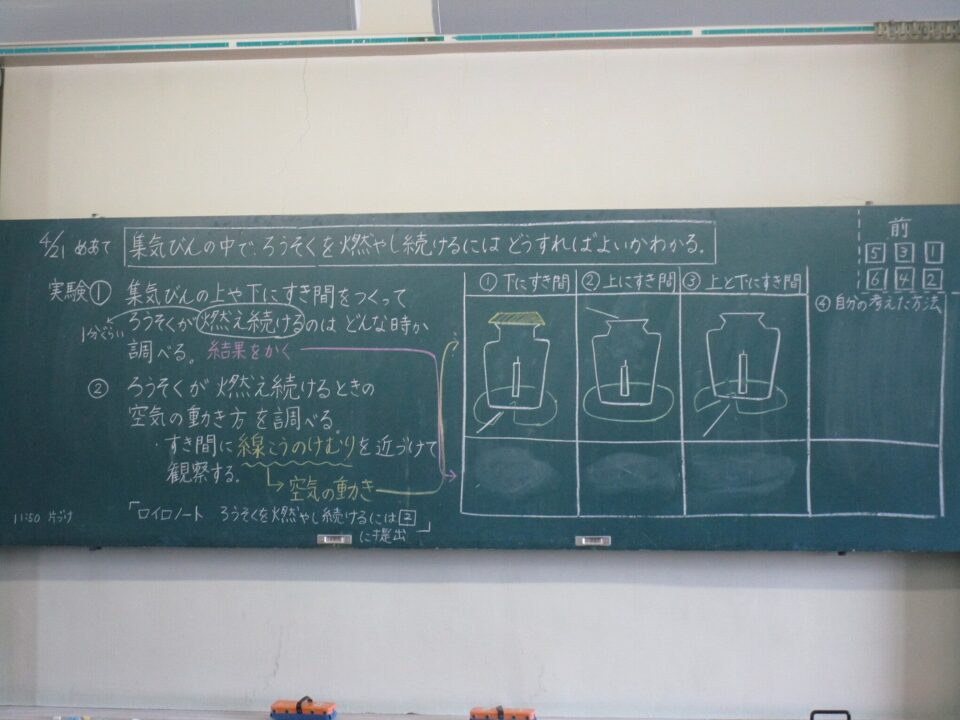 4/21 めあて 集気びんの中で ろうそくを燃やし続けるには どうすればよいかわかる。
実験① 集気びんの上や下にすき間をつくって
1分ぐらい ろうそくが 燃え続けるのは どんな時か
調べる。 結果をかく
② ろうそくが 燃え続けるときの
空気の動き方 を調べる。
・すき間に 線こうのけむりを近づけて
観察する。
空気の動き
11:50 片づけ
「ロイロノート ろうそくを燃やし続けるには 2」
に提出
① 下にすき間
② 上にすき間
③ 上と下にすき間
④ 自分の考えた方法
前
5 3 1
6 4 2